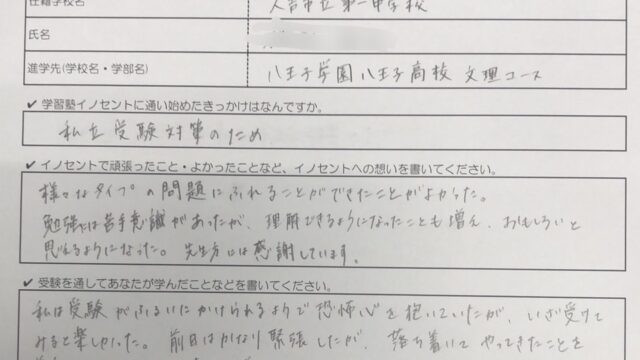 在籍学校名 市立第一中学校
氏名
進学先(学校名・学部名) 八王子学園八王子高校 文理コース
✔ 学習塾イノセントに通い始めたきっかけはなんですか。
私立受験対策のため
✔ イノセントで頑張ったこと・よかったことなど、イノセントへの想いを書いてください。
様々なタイプの問題にふれることができたことがよかった。
勉強では苦手意識があったが、理解できるようになったことも増え、おもしろいと
思えるようになった。先生方には感謝しています。
✔ 受験を通してあなたが学んだことなどを書いてください。
私は受験がふるいにかけられるようで恐怖心を抱いていたが、いざ受けて
みると楽しかった。前日はかなり緊張したが、落ち着いてやってきたことを